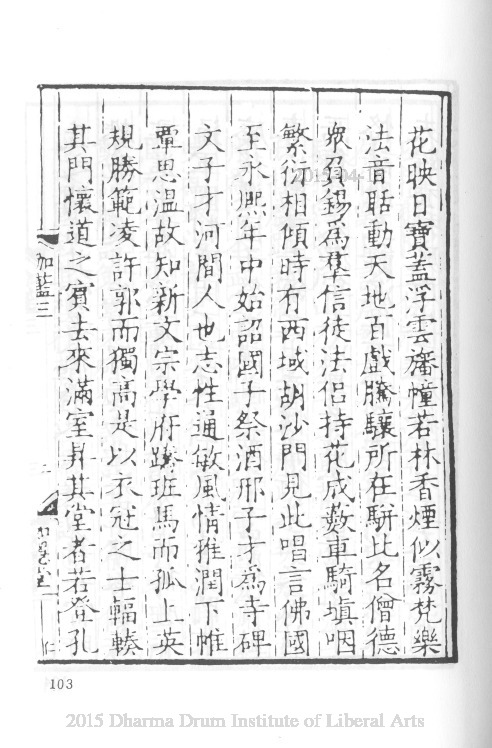 花映日寶蓋浮雲旛幢若林香煙似霧梵樂
法音聒動天地百戲騰驤所在駢比名僧德
衆負錫爲羣信徒法侶持花成藪車騎塡咽
繁衍相傾時有西域胡沙門見此唱言佛國
至永熙年中始詔國子祭酒邢子才爲寺碑
文子才河間人也志性通敏風情雅潤下帷
覃思温故知新文宗學府躋班馬而孤上英
規勝範凌許郭而獨高是以衣冠之士輻輳
其門懷道之賓去來滿室昇其堂者若登孔
伽藍三
103
2015 Dharma Drum Institute of Liberal Arts